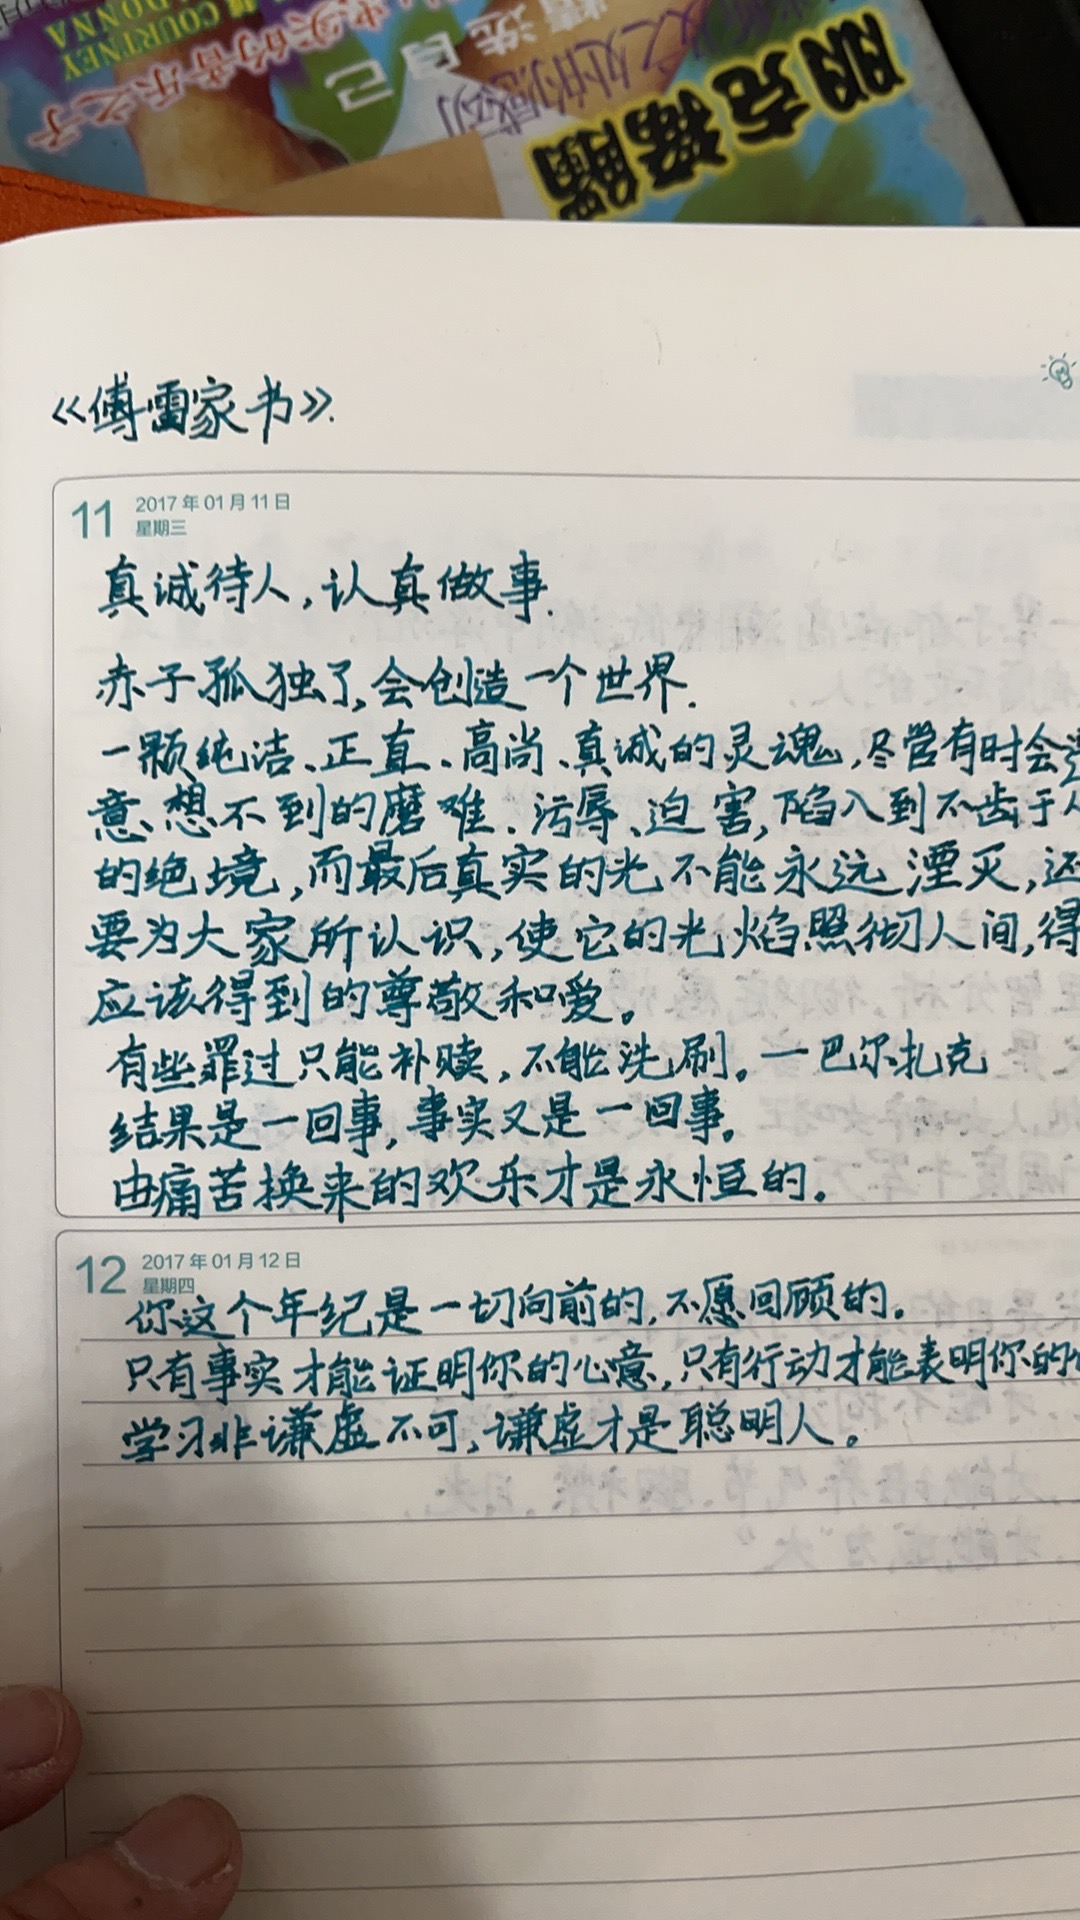 COURTNEY
DONNA
音乐之子
精选自己
处的感动
明克海膽
《傅雷家书》.
11
2017年01月11日
星期三
真诚待人,认真做事.
赤子孤独了,会创造一个世界.
一颗纯洁、正直、高尚、真诚的灵魂,尽管有时会遭
意想不到的磨难、污辱、迫害,陷入到不齿于人
的绝境,而最后真实的光不能永远湮灭,还
要为大家所认识,使它的光焰照彻人间,得
应该得到的尊敬和爱。
有些罪过只能补赎,不能洗刷。—巴尔扎克
结果是一回事,事实又是一回事。
由痛苦换来的欢乐才是永恒的。
12
2017年01月12日
星期四
你这个年纪是一切向前的,不愿回顾的。
只有事实才能证明你的心意,只有行动才能表明你的
学习非谦虚不可,谦虚才是聪明人。